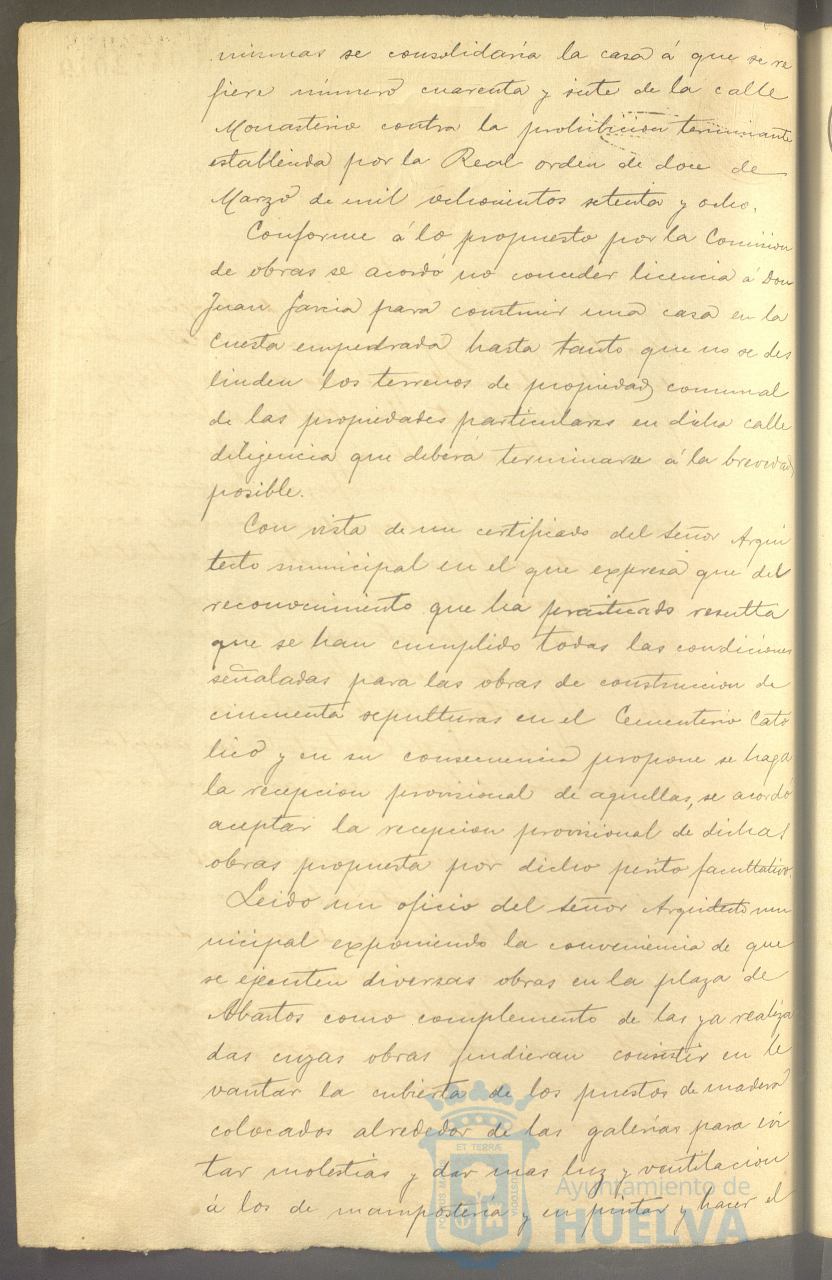 mismas se consolidaria la casa á que se re
fiere número cuarenta y siete de la calle
Monasterio contra la prohibicion terminante
establecida por la Real orden de doce de
Marzo de mil ochocientos setenta y ocho.
Conforme á lo propuesto por la Comision
de obras se acordó no conceder licencia á Don
Juan Garcia para construir una casa en la
Cuesta empedrada hasta tanto que no se des
linden los terrenos de propiedad comunal
de las propiedades particulares en dicha calle
diligencia que deberá terminarse á la brevedad
posible.
Con vista de un certificado del Señor Arqui
tecto municipal en el que expresa que del
reconocimiento que ha practicado resulta
que se han cumplido todas las condiciones
señaladas para las obras de construccion de
cincuenta sepulturas en el Cementerio Cató
lico y en su consecuencia propone se haga
la recepcion provisional de aquellas, se acordó
aceptar la recepcion provisional de dichas
obras propuesta por dicho perito facultativo.
Leido un oficio del Señor Arquitecto mu
nicipal exponiendo la conveniencia de que
se ejecuten diversas obras en la plaza de
Abastos como complemento de las ya realiza
das cuyas obras pudieran consistir en le
vantar la cubierta de los puestos de madera
colocados alrededor de las galerías para evi
tar molestias y dar mas luz y ventilacion
á los de mampostería y en pintar y hacer el
ET TERRÆ
PORTUS MARIS
CUSTODIA
Ayuntamiento de
HUELVA